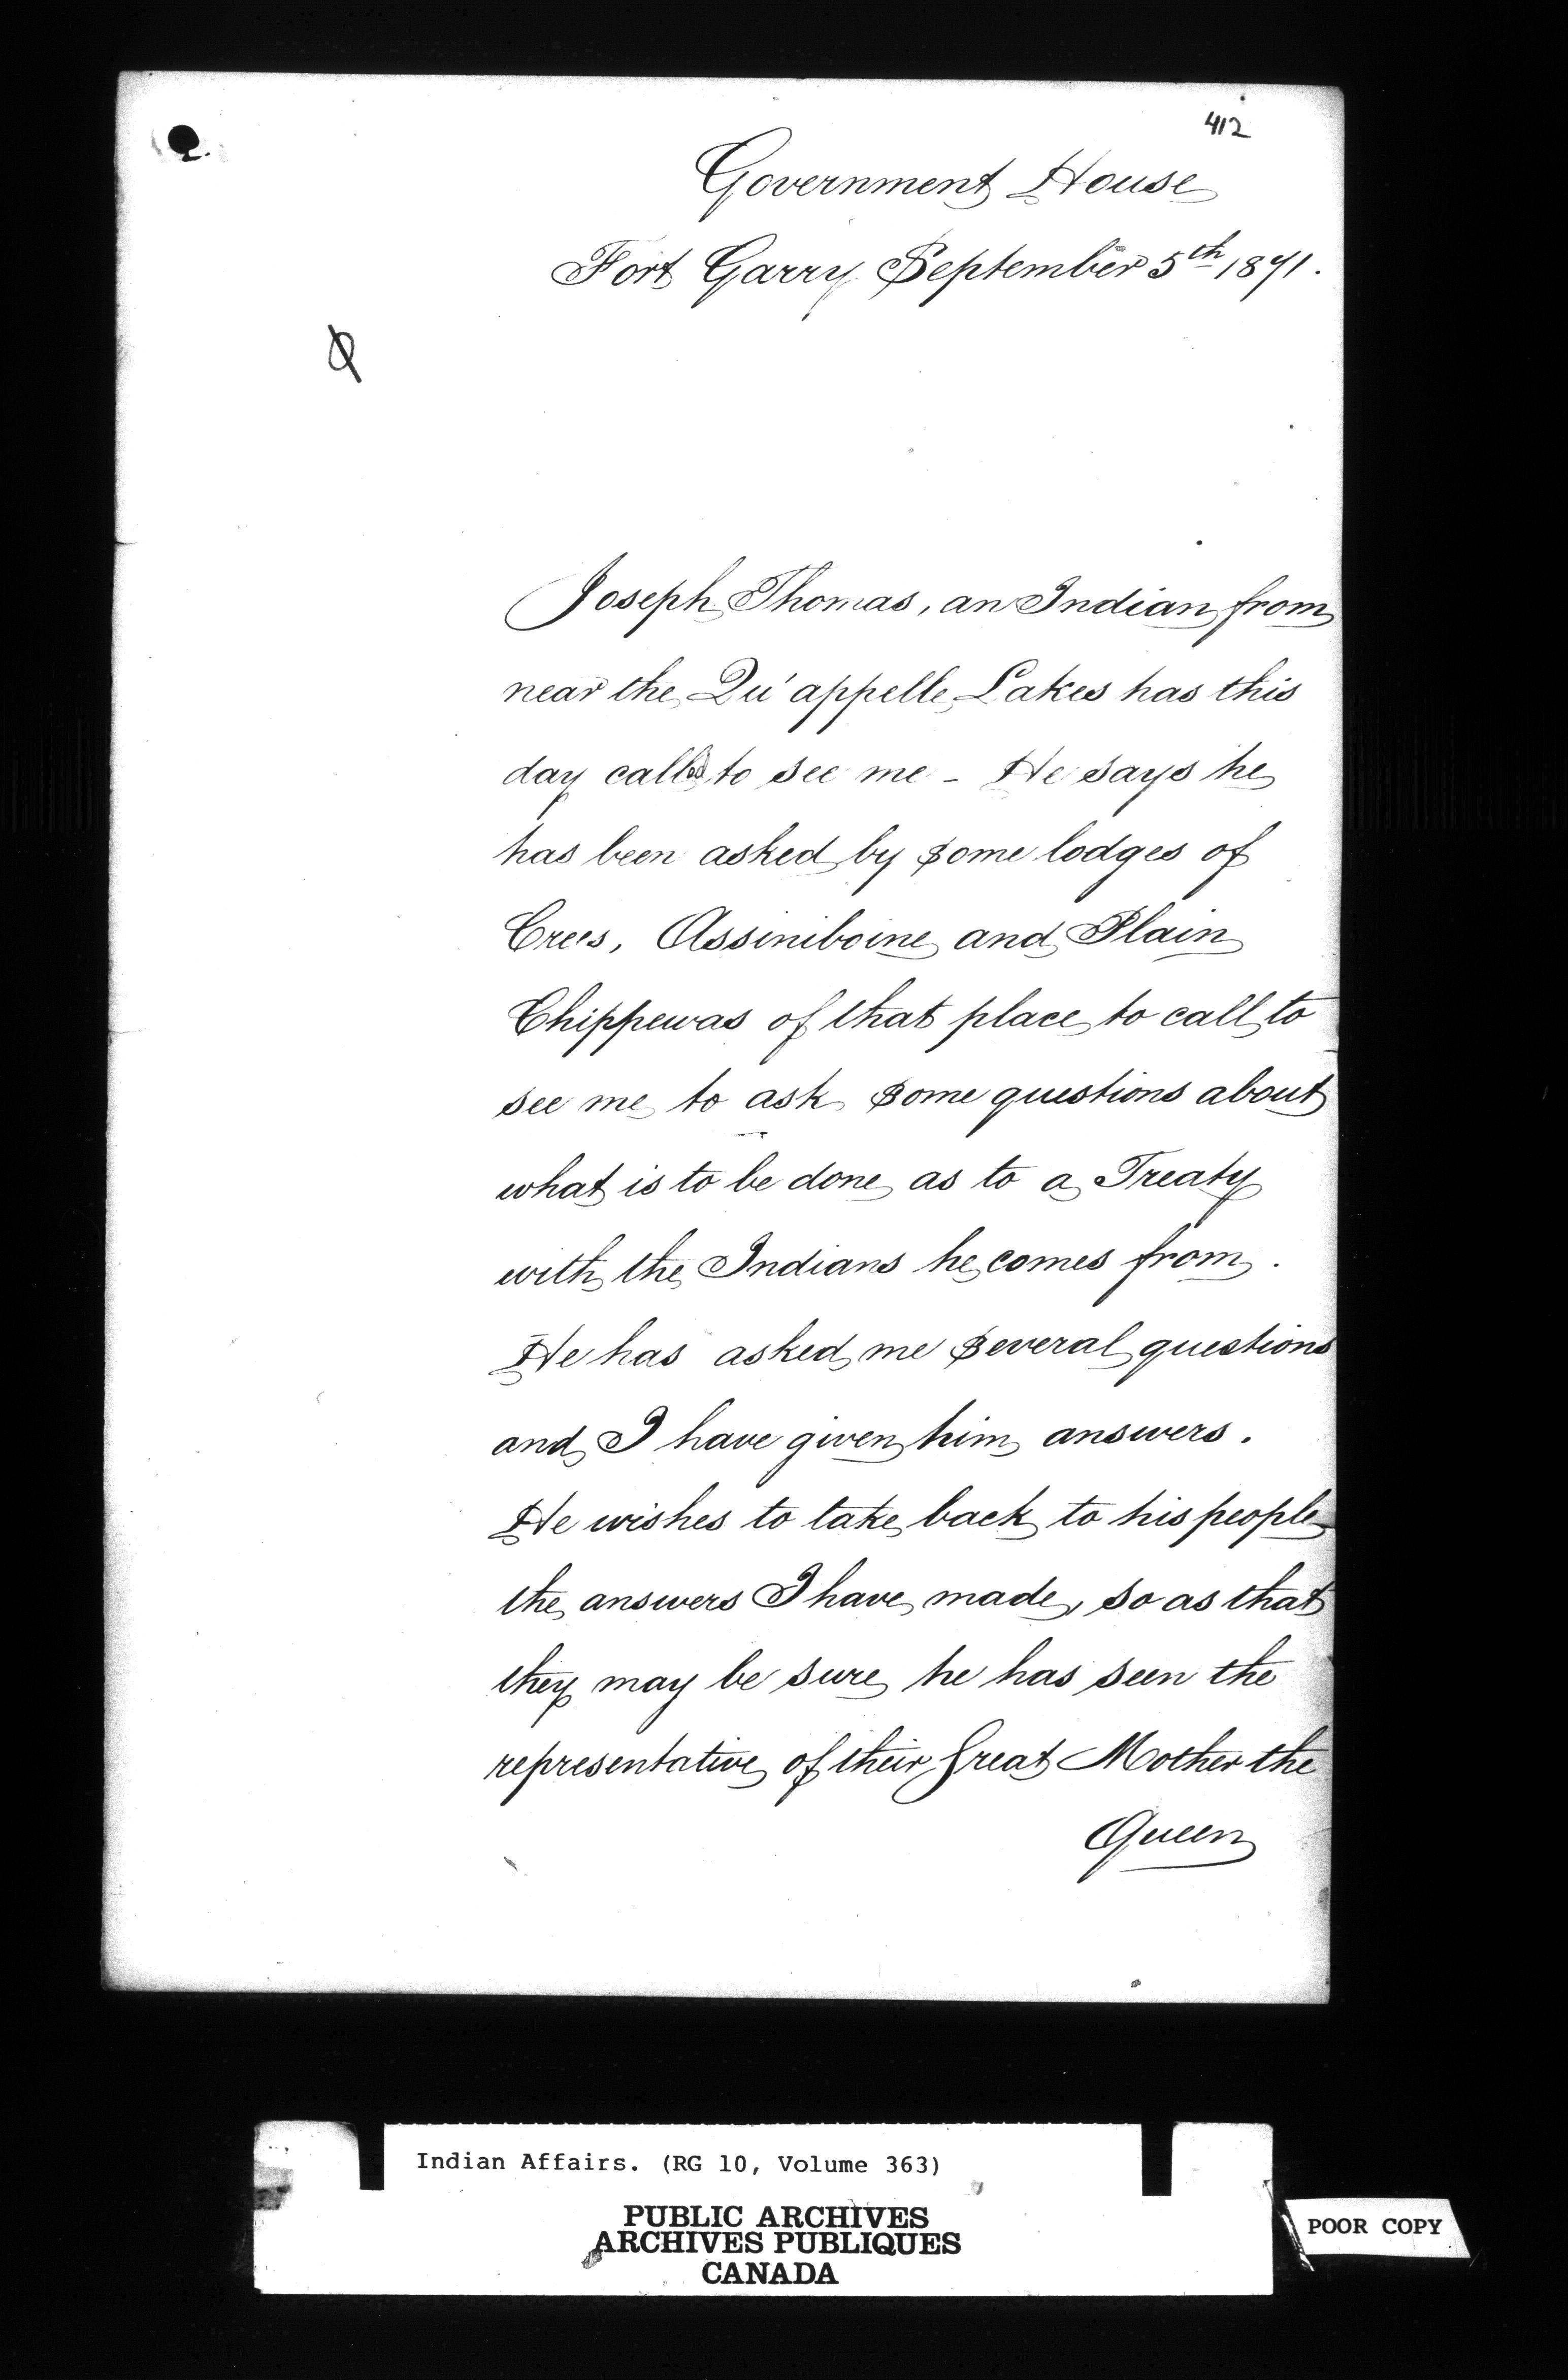 412
Government House
Fort Garry September 5th 1871.
Joseph Thomas, an Indian from
near the Qu'appelle Lakes has this
day called to see me - He says he
has been asked by some lodges of
Crees, Assiniboine and Plain
Chippewas of that place to call to
see me to ask some questions about
what is to be done as to a Treaty
with the Indians he comes from.
He has asked me several questions
and I have given him answers.
He wishes to take back to his people
the answers I have made, so as that
they may be sure he has seen the
representative of their Great Mother the
Queen
Indian Affairs. (RG 10, Volume 363)
PUBLIC ARCHIVES
ARCHIVES PUBLIQUES
CANADA
POOR COPY